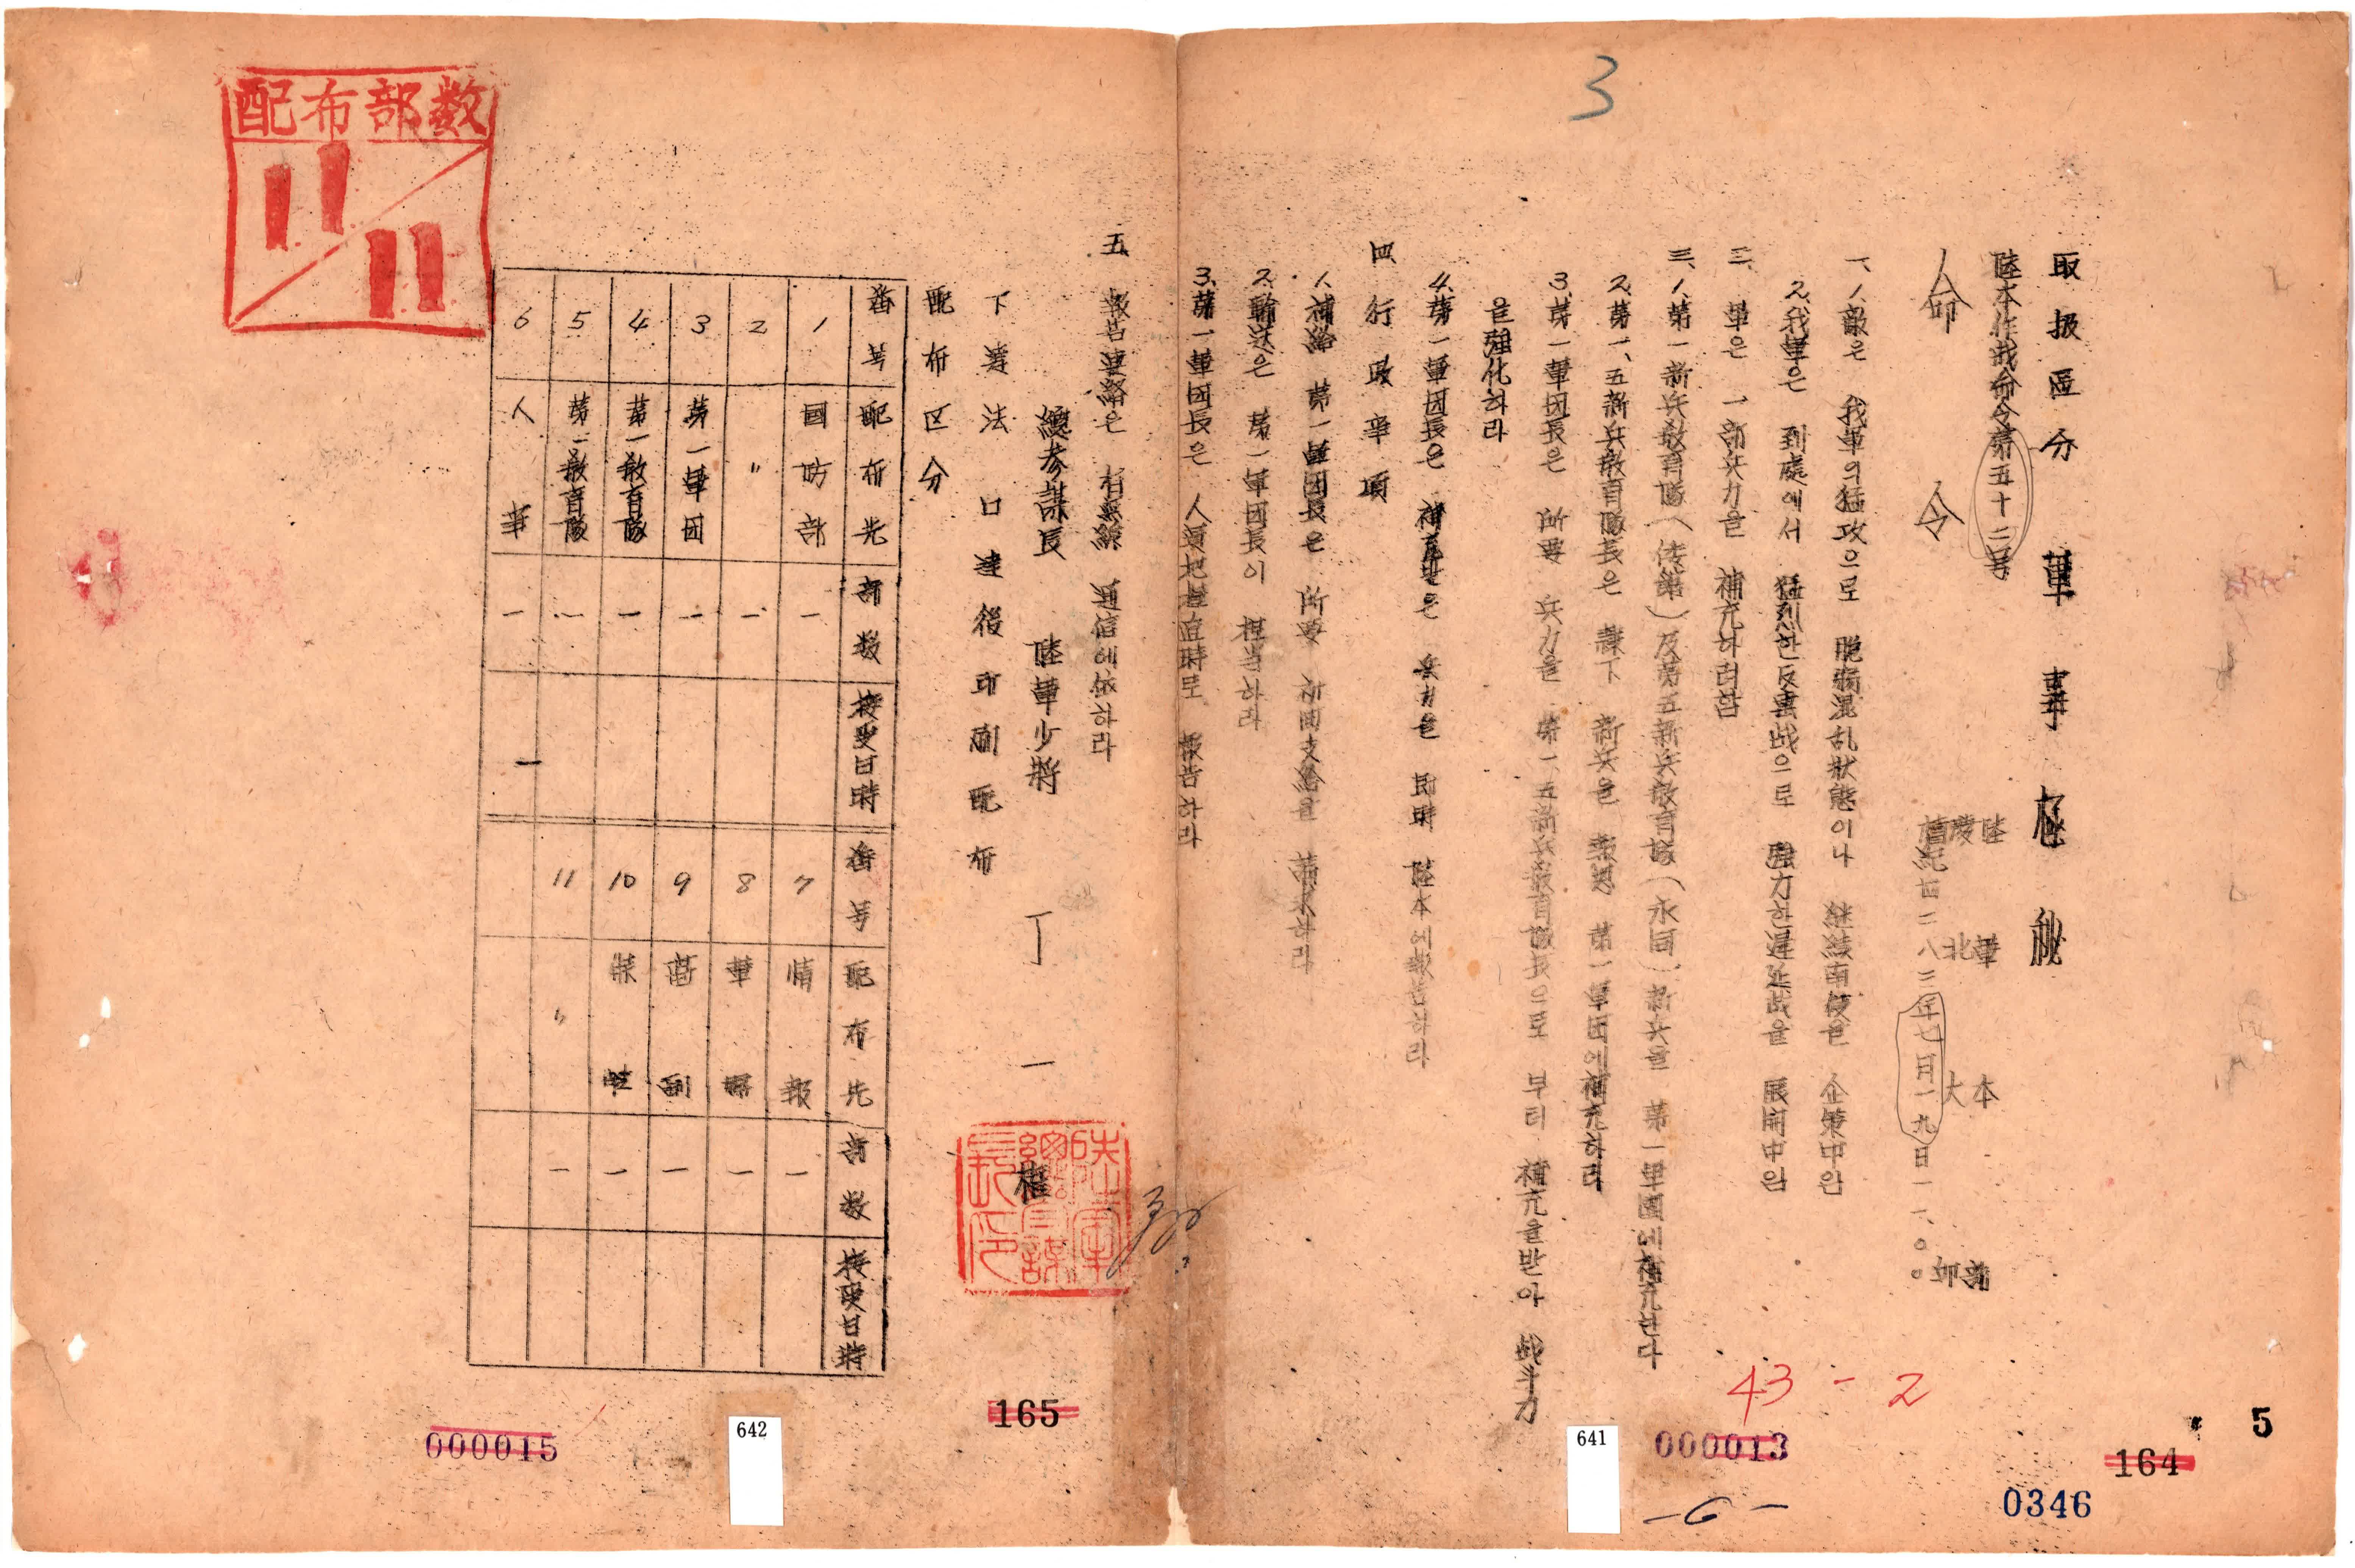 3
取扱區分 軍事極秘
陸本作戰命令第五十二号
陸軍本部
慶北大邱
檀紀四二八三年七月一九日一一、〇〇
命令
一、1、敵은 我軍의 猛攻으로 脫弱混乱狀態이나 継続南侵을 企策中임
2、我軍은 到處에서 猛烈한 反擊战으로 强力한 遲延战을 展開中임
二、軍은 一部兵力을 補充하려함
三、1、第一新兵敎育隊(倭舘)及第五新兵敎育隊(永同)新兵을 第一軍團에 補充한다
2、第一、五新兵敎育隊長은 隷下 新兵을 第一軍団에 補充하라
3、第一軍団長은 所要 兵力을 第一、五新兵敎育隊長으로 부터 補充을받아 战斗力
을 强化하라
4、第一軍団長은 補充받은 兵力을 即時 陸本에 報告하라
四 行政事項
1、補給 第一軍団長은 所要 補給을 請求하라
2、輸送은 第一軍団長이 担当하라
3、第一軍団長은 人員把握 直時로 報告하라
五 報告連絡은 有無線 通信에 依하라
總參謀長 陸軍少將 丁一權
陸軍總參謀長印
下達法 口達後印刷配布
配布区分
番号 配布先 部数 接受日時 番号 配布先 部数 接受日時
1 國防部 一 7 情報 一
2 〃 一 8 軍 一
3 第一軍団 一 9 高副 一
4 第一敎育隊 一 10 一
5 敎育隊 一 11 〃 一
6 人事 一
配布部数
11/11
43-2
5
164
0346
000013
641
-6-
165
642
000015